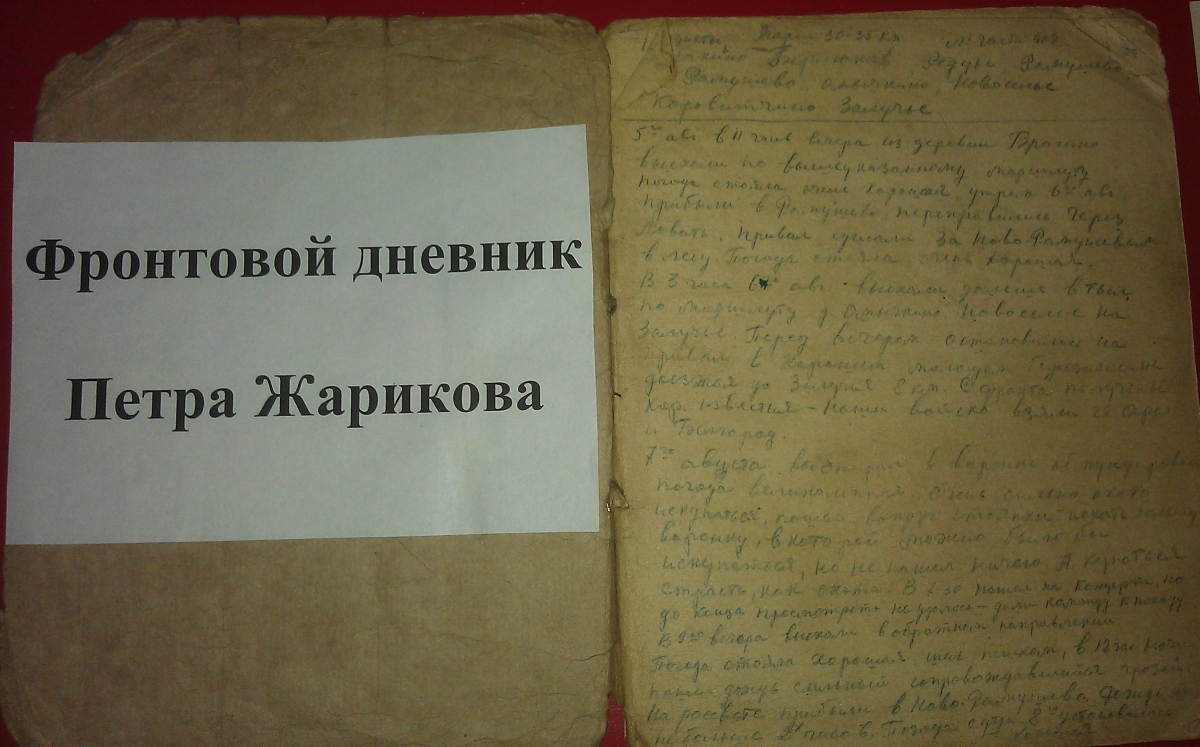 Фронтовой дневник
Петра Жарикова
Марш 30-35 км № части
Редцы Рамушево
Рамушево, Новоселье
Коровитчино Залучье
5го авг в 11 час вечера из деревни
выехали по вышеуказанному маршруту
Погода стояла очень хорошая, утром 6го авг
прибыли в Рамушево, переправились через
Ловать, привал сделали за Ново-Рамушевым
в лесу. Погода стояла очень хорошая.
В 3 часа 6го авг выехали дальше в тыл
по маршруту д. Омычкино Новоселье на
Залучье. Перед вечером остановились на
привал в хорошем молодом не
доезжая до Залучья 8 км. С фронта получены
хор. известия – наши войска взяли гг Орел
и Белгород.
7го августа
Погода великолепная. Очень сильно охота
искупаться, пошел вокруг стоянки искать
воронку, в которой можно было бы
искупаться, но не нашел ничего. А купаться
страсть, как охота. В пошел на концерт, но
до конца просмотреть не удалось – дали команду к походу
В 9 00 вечера выехали в обратном направлении
Погода стояла хорошая, шли пешком, в 12 час ночи
пошел дождь сильный сопровождавшийся грозой.
На рассвете прибыли в Ново-Рамушево. Дождь
не больше часов. Погода с утра 8го установилась